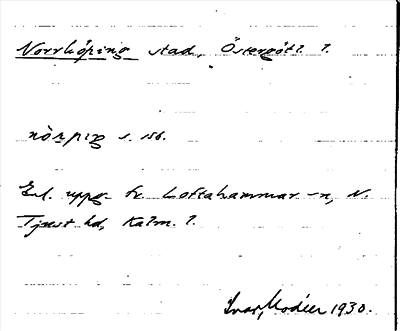 Norrköping stad, Östergötl. l.
nȯ̀rpiŋ s. 156.
Enl. uppg. fr. Loftahammar-n, N.
Tjust hd, Kalm. l.
Ivar Modéer 1930.